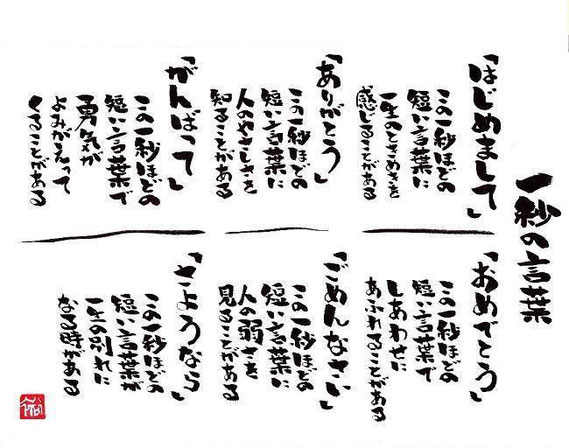 一秒の言葉
「はじめまして」
この一秒ほどの
短い言葉に
一生のときめきを
感じることがある
「ありがとう」
この一秒ほどの
短い言葉に
人のやさしさを
知ることがある
「がんばって」
この一秒ほどの
短い言葉で
勇気が
よみがえって
くることがある
「おめでとう」
この一秒ほどの
短い言葉で
しあわせに
あふれることがある
「ごめんなさい」
この一秒ほどの
短い言葉に
人の弱さを
見ることがある
「さようなら」
この一秒ほどの
短い言葉が
一生の別れに
なる時がある